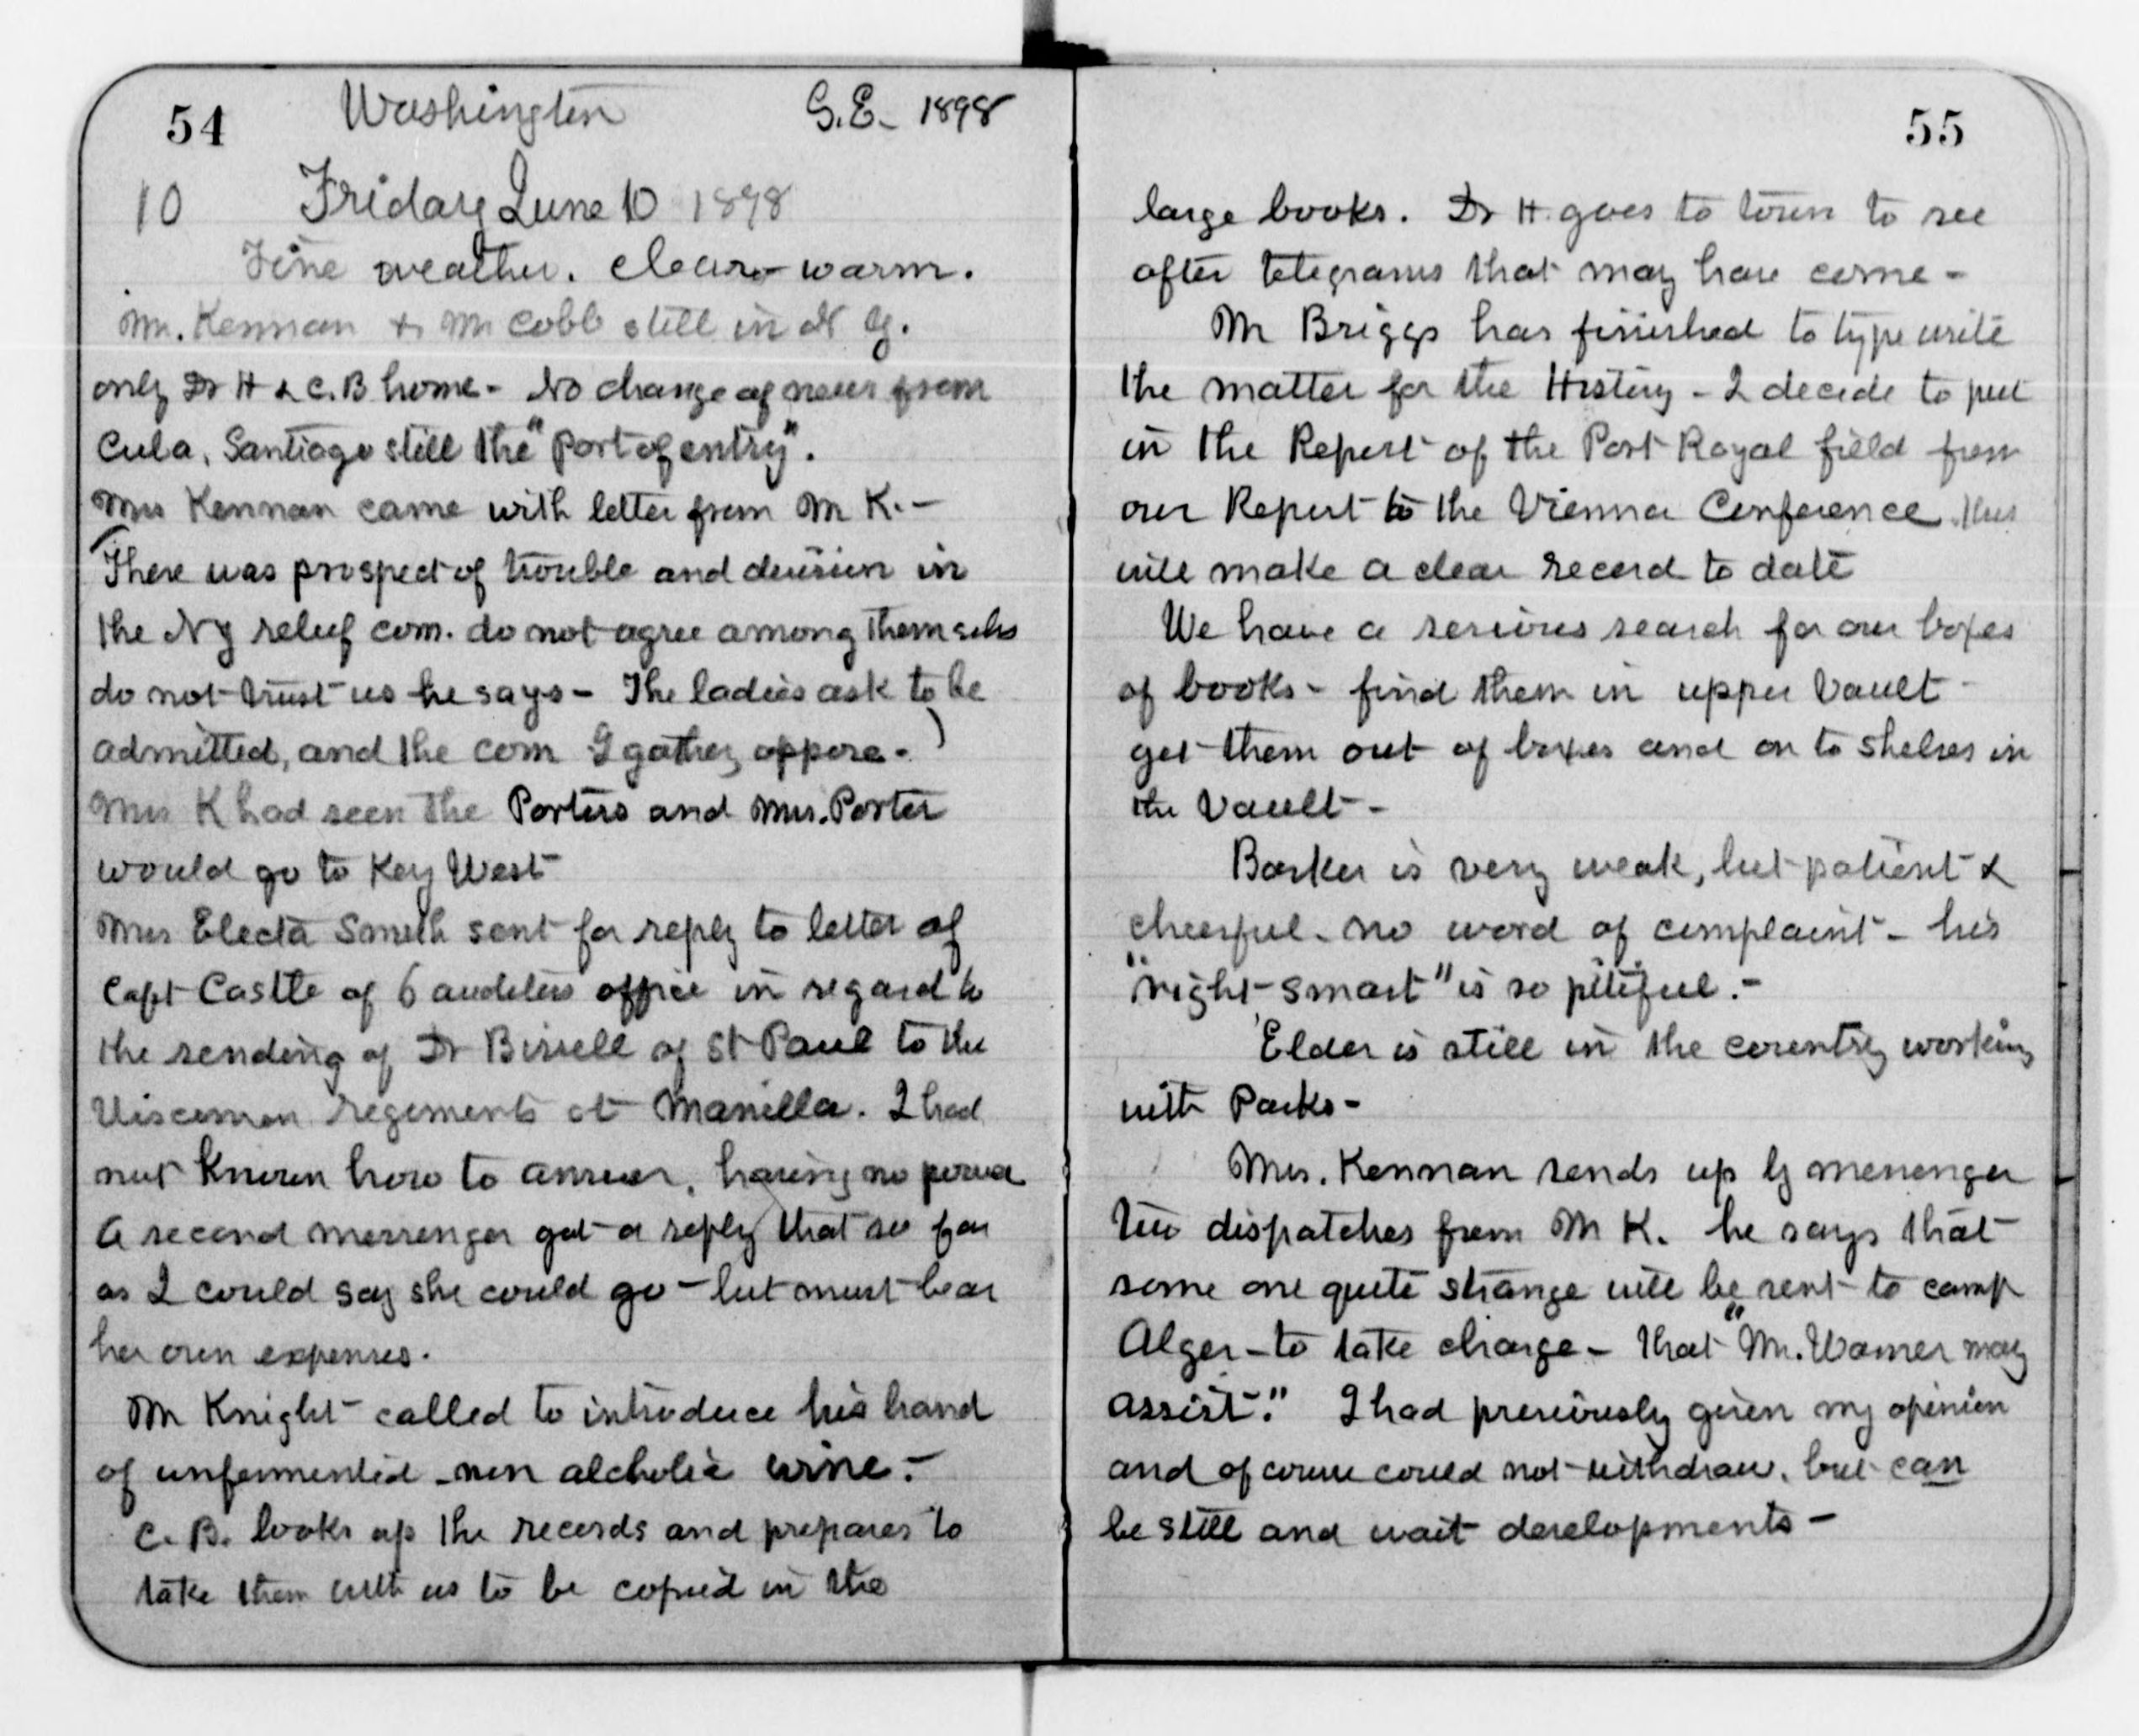 54 Washington G.E. 1898
10 Friday June 10 1898
Fine weather. Clear & warm.
Mr. Kennan & Mr Cobb still in N Y.
only Dr H & C.B home - No change of news from
Cuba, Santiago still the "port of entry".
Mrs Kennan came with letter from Mr K. -
(There was prospect of trouble and division in
the N Y relief com. do not agree among themselves
do not trust us he says - The ladies ask to be
admitted, and the com I gather, oppose - )
Mrs K had seen the Porters and Mrs. Porter
would go to Key West
Mrs Electa Smith sent for reply to letter of
Capt Castle of 6 auditors office in regard to
the sending of Dr Bissell of St Paul to the
Wisconsin regiments at Manilla. I had
not known how to answer, having no power
A second messenger got a reply that so far
as I could say she could go - but must bear
her own expenses.
Mr Knight called to introduce his brand
of unfermented - non alcholic wine. -
C. B. looks up the records and prepares to
take them with us to be copied in the
55
large books. Dr H. goes to town to see
after telegrams that may have come -
Mr Briggs has finished to type write
the matter for the History - I decide to put
in the Report of the Port Royal field from
our Report to the Vienna Conference. this
will make a clear record to date
We have a serious search for our boxes
of books - find them in upper Vault -
get them out of boxes and on to shelves in
the Vault -
Barker is very weak, but patient &
cheerful - no word of complaint - his
"right-smart" is so pitiful. -
Elder is still in the country working
with Parks -
Mrs. Kennan sends up by messenger
two dispatches from Mr K. he says that
some one quite strange will be sent to camp
Alger - to take charge - that "Mr. Warner may
assist." I had previously given my opinion
and of course could not withdraw, but can
be still and wait developments -